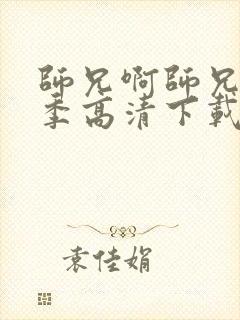 師兄啊師兄
季高清下載
袁佳娟